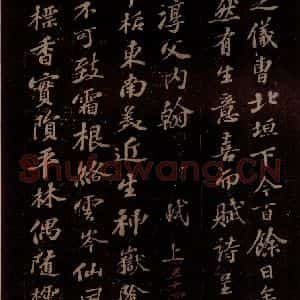 之儀曹北垣下今百餘日
然有生意喜而賦詩呈
淳父内翰 軾上
翠栝東南美近生神嶽陰
不可致霜根絡雲岑仙風
標香實隕平林偶隨樵
Shufawang.CN